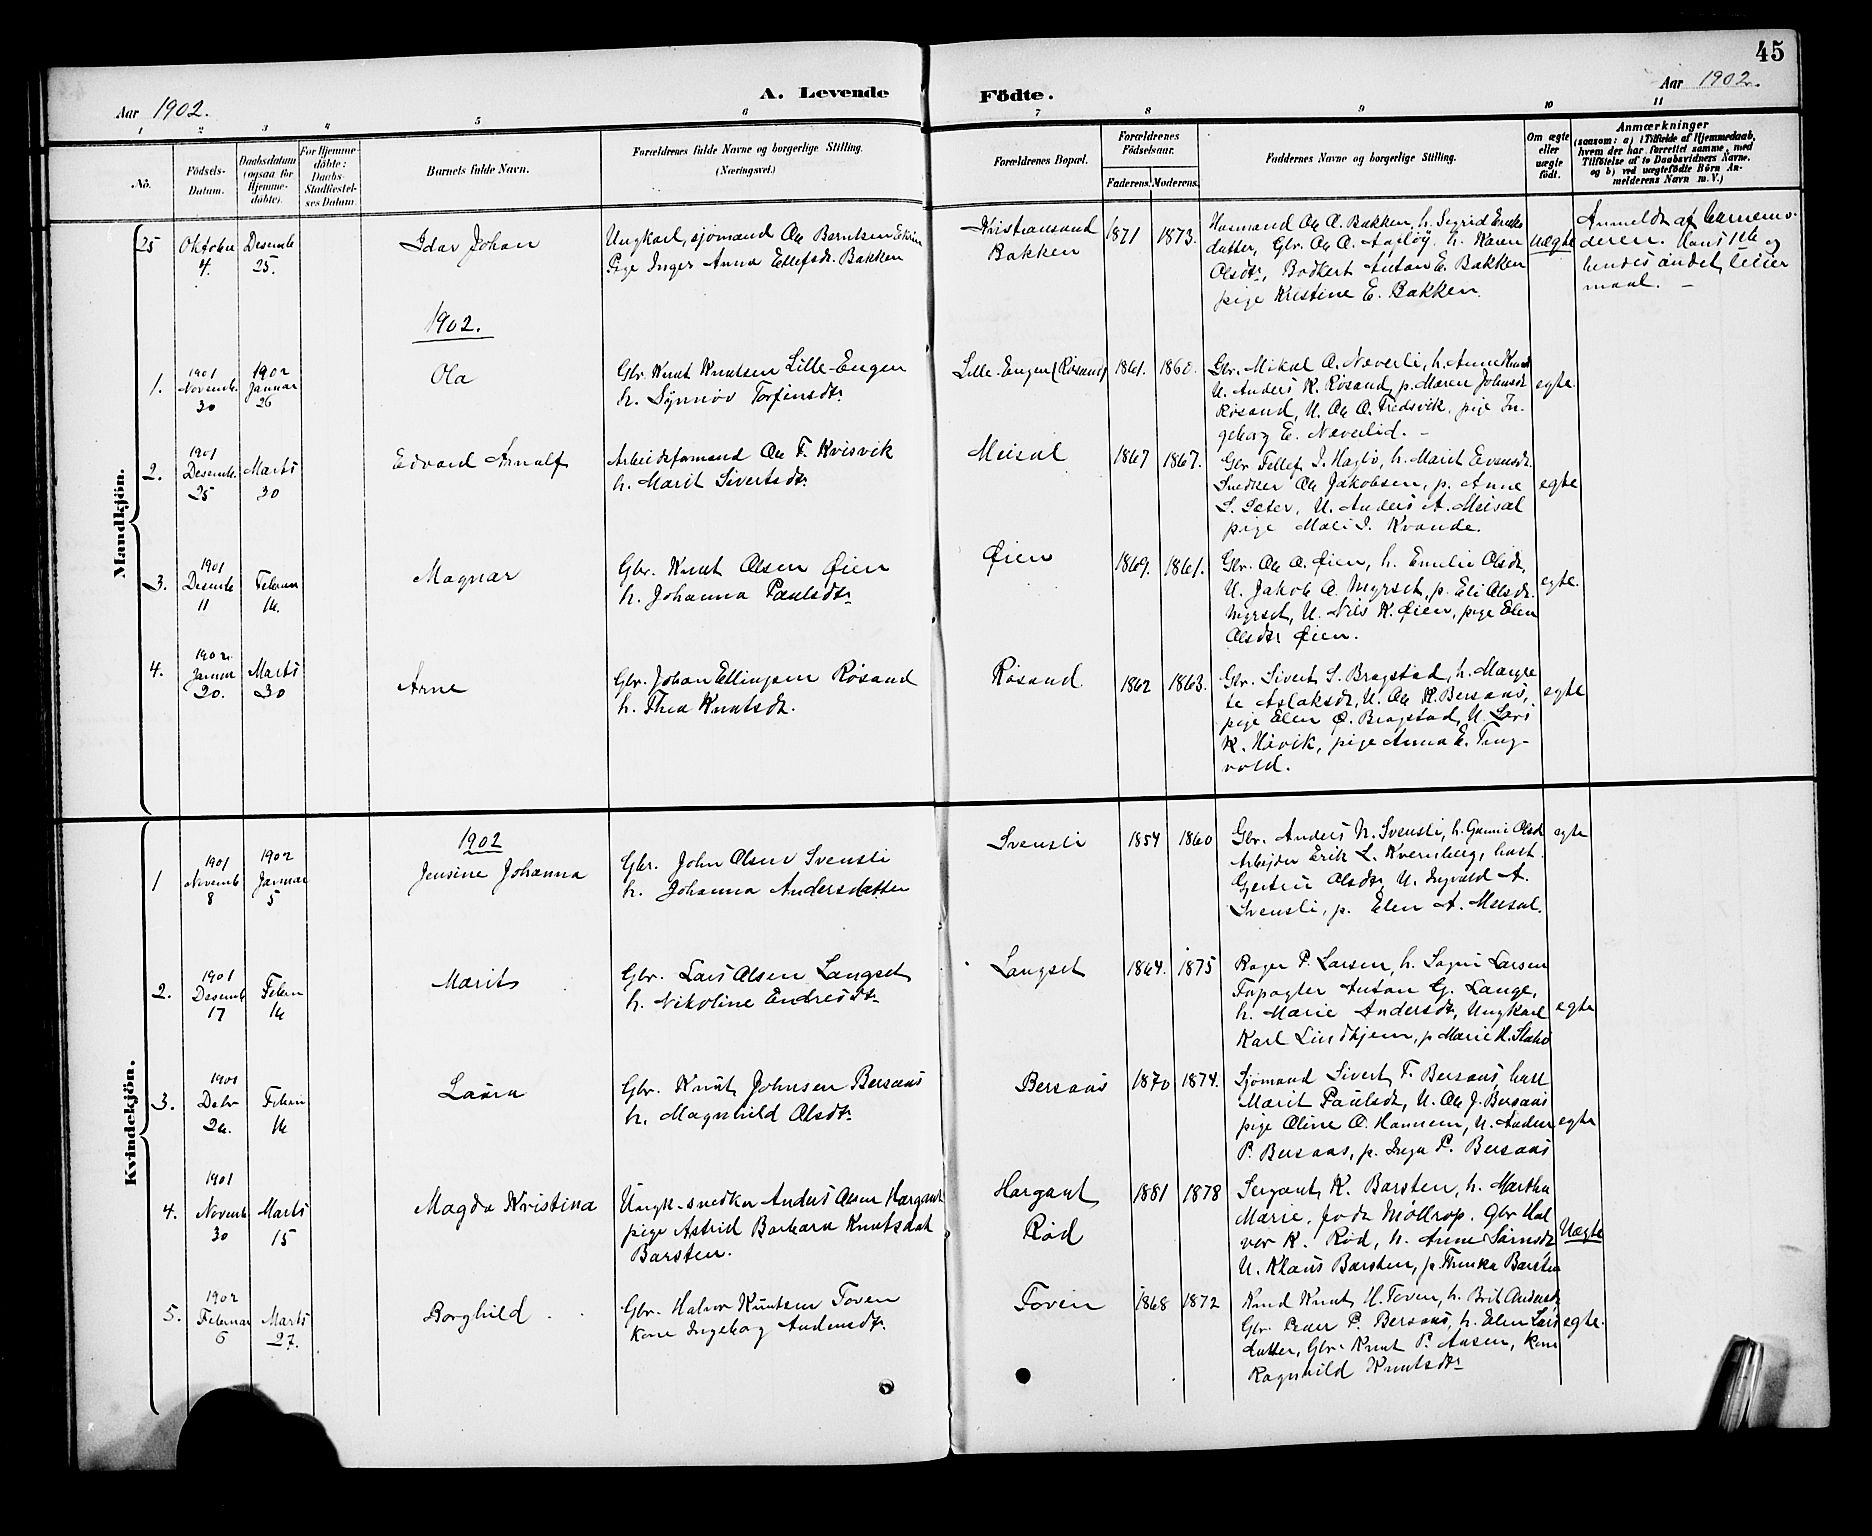 45
Aar 1902.
A. Levende Födte.
Aar 1902.
1 2 3 4 5 6 7 8 9 10 11
No.
Födsels-
Datum.
Daabsdatum
(ogsaa for
Hjemme-
döbte).
For Hjemme-
döbte:
Daabs-
Stadfæstel-
ses Datum
Barnets fulde Navn.
Forældrenes fulde Navne og borgerlige Stilling.
(Næringsvei.)
Forældrenes Bopæl.
Forældrenes
Födselsaar.
Faderens. Moderens.
Faddernes Navne og borgerlige Stilling.
Om ægte
eller
uægte
født.
Anmærkninger
(saasom: a) i Tilfælde af Hjemmedaab,
hvem der har forrettet samme, med
Tilföielse af to Daabsvidners Navne.
og b) ved uægtefödte Börn An-
melderens Navn m. V.)
Mandkjön.
25
Oktober
4.
Desemb
25.
Idar Johan
Ungkarl, sjömand Ole Berntsen
Pige Inger Anna Ellefsdr. Bakken
Kristiansund
Bakken
1871 1873.
Husmand Ole O. Bakken, h. Sigrid Ereks
datter, Gbr. Ole O. h. Karen
Olsdtr, Bödker Anton E. Bakken
pige Kristine E. Bakken.
Uægte
Anmeldt af barnemo-
deren. Hans 1te og
hendes andet leier
maal. –
1902.
1.
1901
Novemb.
30
1902
Januar
26
Ola
Gbr. Knut Knutsen Lille-Engen
h. Synnöv Torfinsdtr
Lille-Engen (Rösand)
1861. 1860.
Gbr. Mikal O. Neverli, h. Anne Knud
U. Anders K. Rösand, p. Maren Johnsdr
Rösand, U. Ole O. Fredsvik, pige In-
geborg E. Neverlid. –
egte
2.
1901
Desemb.
25
Marts
30
Edvard Arnulf
Arbeidsformand Ole F. Kvisvik
h. Marit Sivertsdtr
Meisal
1867 1867.
Gbr Fellef I. h. Marit Evensdr.
Snedker Ole Jakobsen, p. Anne
S. Seter, U. Anders A. Meisal
pige Mali I. Kvande.
egte
3.
1901
Desemb
11
Februar
16.
Magnar
Gbr. Knut Olsen Øien
h. Johanna Paulsdtr
Øien
1869. 1861.
Gbr. Ole O. Øien, h. Emelie Olsdr,
U. Jakob O. Myrset, p. Eli Olsdr.
Myrset, U. Nils K. Øien, pige Elen
Olsdtr Øien.
egte.
4.
1902.
Januar
20.
Marts
30
Arne
Gbr. Johan Ellingsen Rösand
h. Thea Knutsdtr.
Rösand
1862 1863.
Gbr. Sivert S. Bragstad, h. Margre
te Aslaksdr, U. Ole K. Bersaas,
pige Elen O. Bragstad, U. Lars
K. Hövik, pige Anna E. Ting-
vold.
egte
Kvindekjön.
1902
1
1901
Novemb
8
1902
Januar
5
Jensine Johanna
Gbr. John Olsen Svensli
h. Johanna Andersdatter
Svensli
1854 1860
Gbr. Anders N. Svensli, h. Gunni Olsd
Arbejder Erik L. Kvernberg, hust.
Gjertru Olsdtr, U. Ingvald A.
Svensli, p. Elen A. Meisal.
egte
2.
1901
Desemb
17
Febru
16
Marit
Gbr. Lars Olsen Langset
h. Nikoline Endresdtr
Langset
1864. 1875
Bager P. Larsen, h. Larsen
Forpagter Anton G. Lange,
h. Marie Andersdtr, Ungkarl
Karl Lindhjem, p Marie H.
egte
3.
1901
Debr
26.
Febru
16
Laura
Gbr. Knut Johnsen Bersaas
h. Magnhild Olsdtr
Bersaas
1870 1874.
Sjömand Sivert F. Bersaas, hust
Marit Paulsdr, U. Ole J. Bersaas
pige Oline O. Hannem, U. Anders
P. Bersaas, p. Inga P. Bersaas
egte
4.
1901
Novemb
30
Marts
15
Magda Kristina
Ungk. snedker Anders Olsen Hargaut
pige Astrid Barbara Knutsdat
Barsten.
Hargaut
Rød
1881 1878
Sergant K. Barsten, h. Martha
Marie, Möltrop. Gbr Hal
vor K. Rød, h. Anne
U. Klaus Barsten, p. Barsten
Uægte
5.
1902
Februar
6
Marts
27.
Borghild
Gbr. Halvor Knutsen Toven
kone Ingeborg Andersdtr.
Toven
1868 1872
Knud H. Toven, h. Brit Andersd
Gbr. Peder P. Bersaas, h. Elen Lars
datter, Gbr. Knut P. Aasen, kone
Ragnhild Knutsdtr
egte.